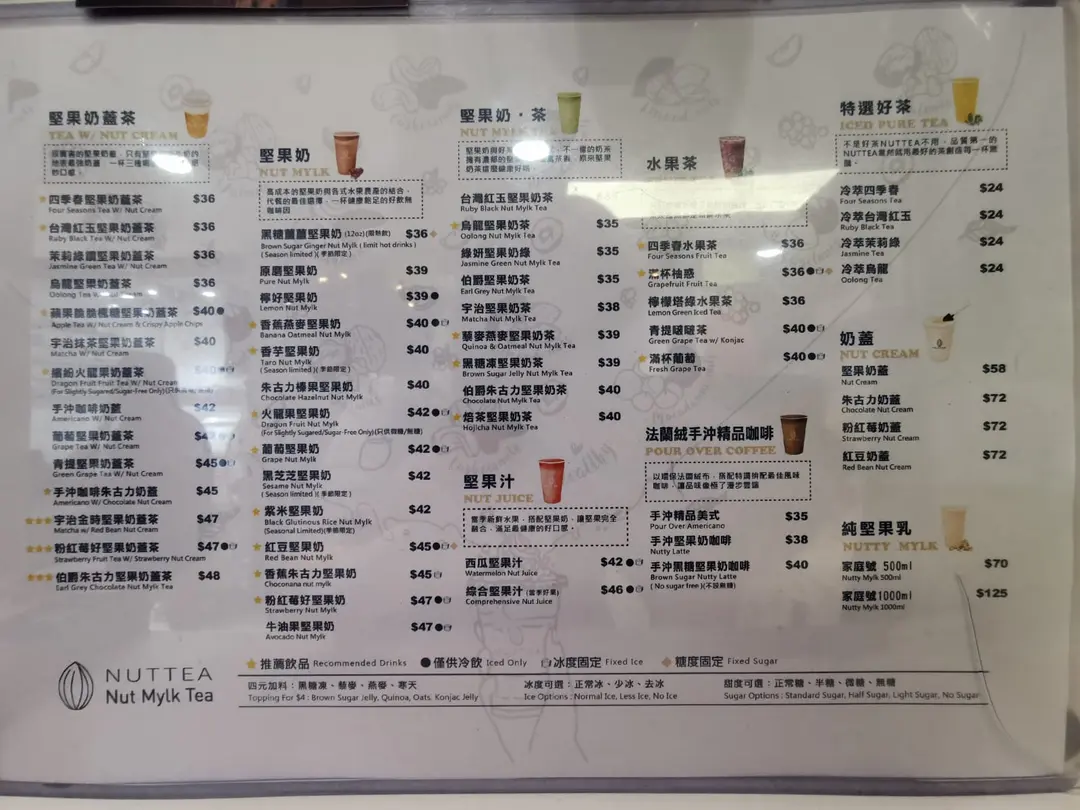 堅果奶蓋茶
TEA W/ NUT CREAM
四季春堅果奶蓋茶 $36
Four Seasons Tea W/ Nut Cream
台灣紅玉堅果奶蓋茶 $36
Ruby Black Tea W/ Nut Cream
茉莉綠鑽堅果奶蓋茶 $36
Jasmine Green Tea W/ Nut Cream
烏龍堅果奶蓋茶 $36
Oolong Tea W/ Nut Cream
蘋果脆脆楓糖堅果奶蓋茶 $40
Apple Tea W/ Nut Cream & Crispy Apple Chips
宇治抹茶堅果奶蓋茶 $40
Matcha W/ Nut Cream
繽紛火龍果奶蓋茶
Dragon Fruit Fruit Tea W/ Nut Cream
手沖咖啡奶蓋 $42
Americano W/ Nut Cream
葡萄堅果奶蓋茶
Grape Tea W/ Nut Cream
青提堅果奶蓋茶 $45
Green Grape Tea W/ Nut Cream
手沖咖啡朱古力奶蓋 $45
Americano W/ Chocolate Nut Cream
宇治金時堅果奶蓋茶 $47
Matcha w/ Red Bean Nut Cream
粉紅莓好堅果奶蓋茶 $47
Strawberry Fruit Tea W/ Strawberry Nut Cream
伯爵朱古力堅果奶蓋茶 $48
Earl Grey Chocolate Nut Mylk Tea
堅果奶
NUT MYLK
高成本的堅果奶與各式水果農產的結合，
代餐的最佳選擇，一杯健康飽足的好飲無
咖啡因
黑糖薑薑堅果奶 (12oz)(限熱飲) $36
Brown Sugar Ginger Nut Mylk ( limit hot drinks )
(Season limited )( 季節限定 )
原磨堅果奶 $39
Pure Nut Mylk
檸好堅果奶 $39
Lemon Nut Mylk
香蕉燕麥堅果奶 $40
Banana Oatmeal Nut Mylk
香芋堅果奶 $40
Taro Nut Mylk
(Season limited )( 季節限定 )
朱古力榛果堅果奶 $40
Chocolate Hazelnut Nut Mylk
火龍果堅果奶 $42
Dragon Fruit Nut Mylk
(For Slightly Sugared/Sugar-Free Only)(只供微糖/無糖)
葡萄堅果奶 $42
Grape Nut Mylk
黑芝芝堅果奶 $42
Sesame Nut Mylk
( Season limited )( 季節限定 )
紫米堅果奶 $42
Black Glutinous Rice Nut Mylk
(Seasonal Limited)(季節限定)
紅豆堅果奶 $45
Red Bean Nut Mylk
香蕉朱古力堅果奶 $45
Choconana nut mylk
粉紅莓好堅果奶 $47
Strawberry Nut Mylk
牛油果堅果奶 $47
Avocado Nut Mylk
堅果奶·茶
NUT MYLK TEA
台灣紅玉堅果奶茶
Ruby Black Nut Mylk Tea
烏龍堅果奶茶 $35
Oolong Nut Mylk Tea
綠妍堅果奶綠 $35
Jasmine Green Nut Mylk Tea
伯爵堅果奶茶 $35
Earl Grey Nut Mylk Tea
宇治堅果奶茶 $38
Matcha Nut Mylk Tea
藜麥燕麥堅果奶茶 $39
Quinoa & Oatmeal Nut Mylk Tea
黑糖凍堅果奶茶 $39
Brown Sugar Jelly Nut Mylk Tea
伯爵朱古力堅果奶茶 $40
Chocolate Nut Mylk Tea
焙茶堅果奶茶 $40
Hojicha Nut Mylk Tea
堅果汁
NUT JUICE
當季新鮮水果，搭配堅果奶，讓堅果完全
融合，滿足最健康的好口感。
西瓜堅果汁 $42
Watermelon Nut Juice
綜合堅果汁 (當季好果) $46
Comprehensive Nut Juice
水果茶
四季春水果茶 $36
Four Seasons Fruit Tea
滿杯柚惑 $36
Grapefruit Fruit Tea
檸檬塔綠水果茶 $36
Lemon Green Iced Tea
青提啵啵茶 $40
Green Grape Tea w/ Konjac
滿杯葡萄 $40
Fresh Grape Tea
法蘭絨手沖精品咖啡
POUR OVER COFFEE
以環保法蘭絨布，搭配特調拚配最佳風味
咖啡，讓品味像極了漫步雲端
手沖精品美式 $35
Pour Over Americano
手沖堅果奶咖啡 $38
Nutty Latte
手沖黑糖堅果奶咖啡 $40
Brown Sugar Nutty Latte
( No sugar free )(不設無糖)
特選好茶
ICED PURE TEA
不是好茶NUTTEA不用，品質第一的
NUTTEA當然就用最好的茶創造每一杯燃
燒。
冷萃四季春 $24
Four Seasons Tea
冷萃台灣紅玉 $24
Ruby Black Tea
冷萃茉莉綠 $24
Jasmine Tea
冷萃烏龍 $24
Oolong Tea
奶蓋
NUT CREAM
堅果奶蓋 $58
Nut Cream
朱古力奶蓋 $72
Chocolate Nut Cream
粉紅莓奶蓋 $72
Strawberry Nut Cream
紅豆奶蓋 $72
Red Bean Nut Cream
純堅果乳
NUTTY MYLK
家庭號 500ml $70
Nutty Mylk 500ml
家庭號1000ml $125
Nutty Mylk 1000ml
NUTTEA
Nut Mylk Tea
推薦飲品 Recommended Drinks 僅供冷飲 Iced Only 冰度固定 Fixed Ice 糖度固定 Fixed Sugar
四元加料：黑糖凍、藜麥、燕麥、寒天
Topping For $4 : Brown Sugar Jelly, Quinoa, Oats, Konjac Jelly
冰度可選：正常冰、少冰、去冰
Ice Options : Normal Ice, Less Ice, No Ice
甜度可選：正常糖、半糖、微糖、無糖
Sugar Options : Standard Sugar, Half Sugar, Light Sugar, No Sugar